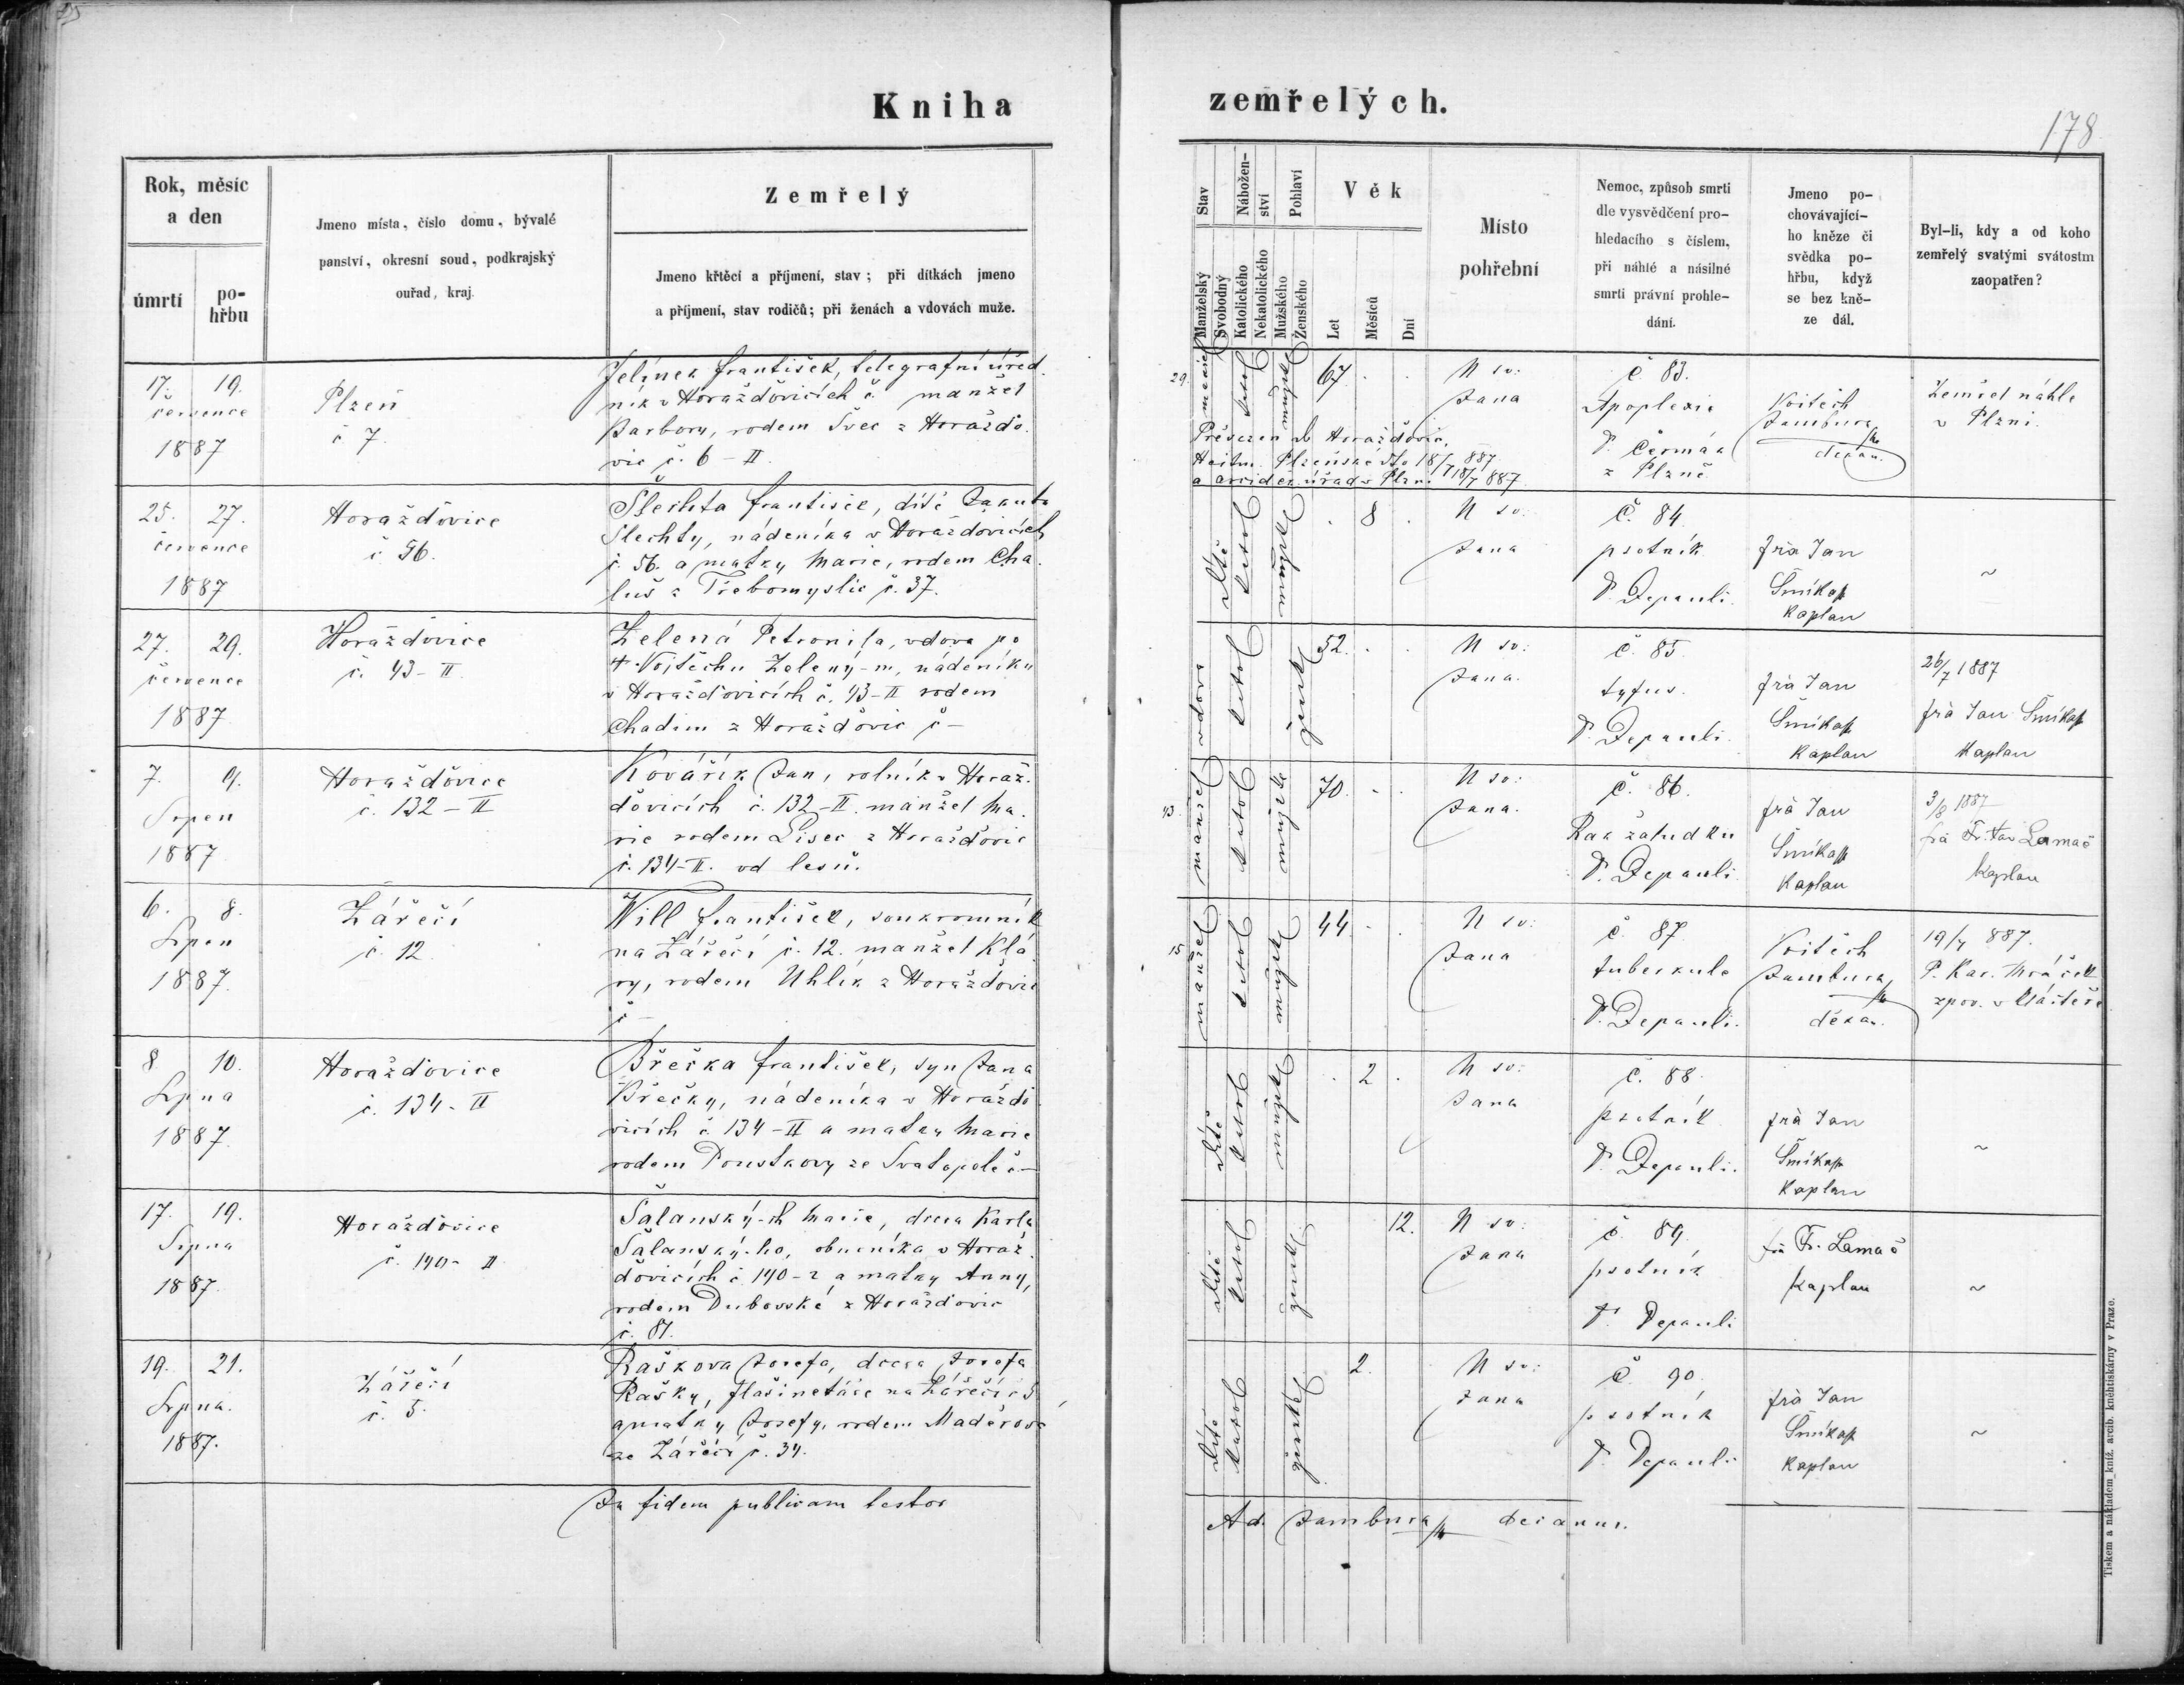 Kniha zemřelých.
178
Rok, měsíc
a den
úmrtí
po-
hřbu
Jmeno místa, číslo domu, bývalé
panství, okresní soud, podkrajský
ouřad, kraj.
Zemřelý
Jmeno křtěcí a příjmení, stav; při dítkách jmeno
a příjmení, stav rodičů; při ženách a vdovách muže.
Stav
Manželský
Svobodný
Nábožen-
ství
Katolického
Nekatolického
Pohlaví
Mužského
Ženského
Věk
Let
Měsíců
Dní
Místo
pohřební
Nemoc, způsob smrti
dle vysvědčení pro-
hledacího s číslem,
při náhlé a násilné
smrti právní prohle-
dání.
Jmeno po-
chovávající-
ho kněze či
svědka po-
hřbu, když
se bez kně-
ze dál.
Byl-li, kdy a od koho
zemřelý svatými svátostm
zaopatřen?
17. 19.
července
1887
Plzeň
č 7.
Jelínek František, telegrafní úřed.
ník v Horažďovicích č. manžel
Barbory, rodem Švec z Horažďo.
vic č. 6 – II.
29.
katol
mužské
67
U sv:
Jana
č. 83.
Apoplexie
D. Čermák
z Plzně
Vojtěch
Jambura
děkan.
Zemřel náhle
v Plzni.
Převezen do Horažďovic.
Hejtm. Plzeňské dto 18/7 887
a arciděk. úřad v Plzni 18/7 887
25. 27.
července
1887
Horažďovice
č 56.
Šlechta František, dítě Jakuba
Šlechty, nádeníka v Horažďovicích
č. 56. a matky Marie, rodem Cha.
luš z Třebomyslic č. 37.
dítě
katol
mužské
8
U sv.
Jana
č. 84
psotník
D. Depauli.
frà Jan
Šmíkal
Kaplan
~
27. 29.
července
1887
Horažďovice
č. 43 – II
Zelená Petronila, vdova po
† Vojtěchu Zelený-m, nádeníku
v Horažďovicích č. 43 – II rodem
Chadim z Horažďovic č –
vdova
katol
ženské
52.
U sv:
Jana.
č. 85.
tyfus.
D. Depauli.
frà Jan
Šmíkal
Kaplan
26/7 1887
frà Jan Šmíkal
Kaplan
7. 9.
Srpen
1887
Horažďovice
č. 132 – II
Kovářík Jan, rolník v Horaž.
ďovicích č. 132 – II. manžel Ma.
rie rodem Lisec z Horažďovic
č. 134 – II. od lesů.
43.
manžel
katol
mužské
70.
U sv:
Jana.
č. 86.
Rak žaludku
D. Depauli
frà Jan
Šmíkal
Kaplan
3/8 1887
frà Fr. Lamač
Kaplan
6. 8.
Srpen
1887.
Zářečí
č. 12
Will František, soukromník
na Zářečí č. 12. manžel Klá.
ry, rodem Uhlík z Horažďovic
č –
15
manžel
katol
mužské
44.
U sv:
Jana
č. 87
tuberkule
D. Depauli.
Vojtěch
Jambura
děkan.
19/7 887.
P. Kar. Mráček
zpov. v klášteře
8 10.
Srpna
1887.
Horažďovice
č. 134 – II
Břečka František, syn Jana
Břečky, nádeníka v Horažďo
vicích č 134 – II a matky Marie
rodem Poustkovy ze Svatopole č –
dítě
katol
mužské
2
U sv:
Jana
č. 88.
psotník
D. Depauli.
frà Jan
Šmíkal
Kaplan
~
17. 19.
Srpna
1887.
Horažďovice
č. 140 – II
Šalanský-ch Marie, dcera Karla
Šalanský-ho, obuvníka v Horaž.
ďovicích č. 140 – 2 a matky Anny,
rodem Dubovské z Horažďovic
č. 87.
dítě
katol
ženské
12.
U sv:
Jana
č. 89.
psotník
D. Depauli
frà Fr. Lamač
Kaplan
~
19. 21.
Srpna.
1887.
Zářečí
č. 5.
Raškova Josefa, dcera Josefa
Rašky, flašinetáře na Zářečí č 5
a matky Josefy, rodem Maděrové
ze Zářečí č. 34.
dítě
katol
ženské
2.
U sv:
Jana
č. 90.
psotník
D. Depauli
frà Jan
Šmíkal
Kaplan
~
In fidem publicam testor
Ad. Jambura decanus.
Tiskem a nákladem kníž. arcib. knihtiskárny v Praze.